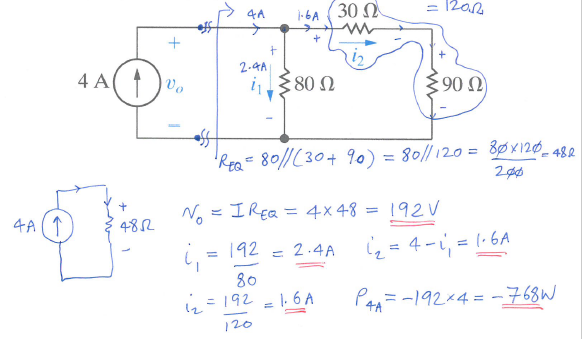 = 120Ω
4A 1.6A 30 Ω
+ + - +
2.4A i₂
4 A vₒ i₁ 80 Ω 90 Ω
- - -
R_EQ = 80//(30+ 90) = 80//120 = 80×120/200 = 48Ω
4A + 48Ω -
Vₒ = I R_EQ = 4×48 = 192 V
i₁ = 192/80 = 2.4A i₂ = 4-i₁ = 1.6A
i₂ = 192/120 = 1.6A P₄A = -192×4 = -768W